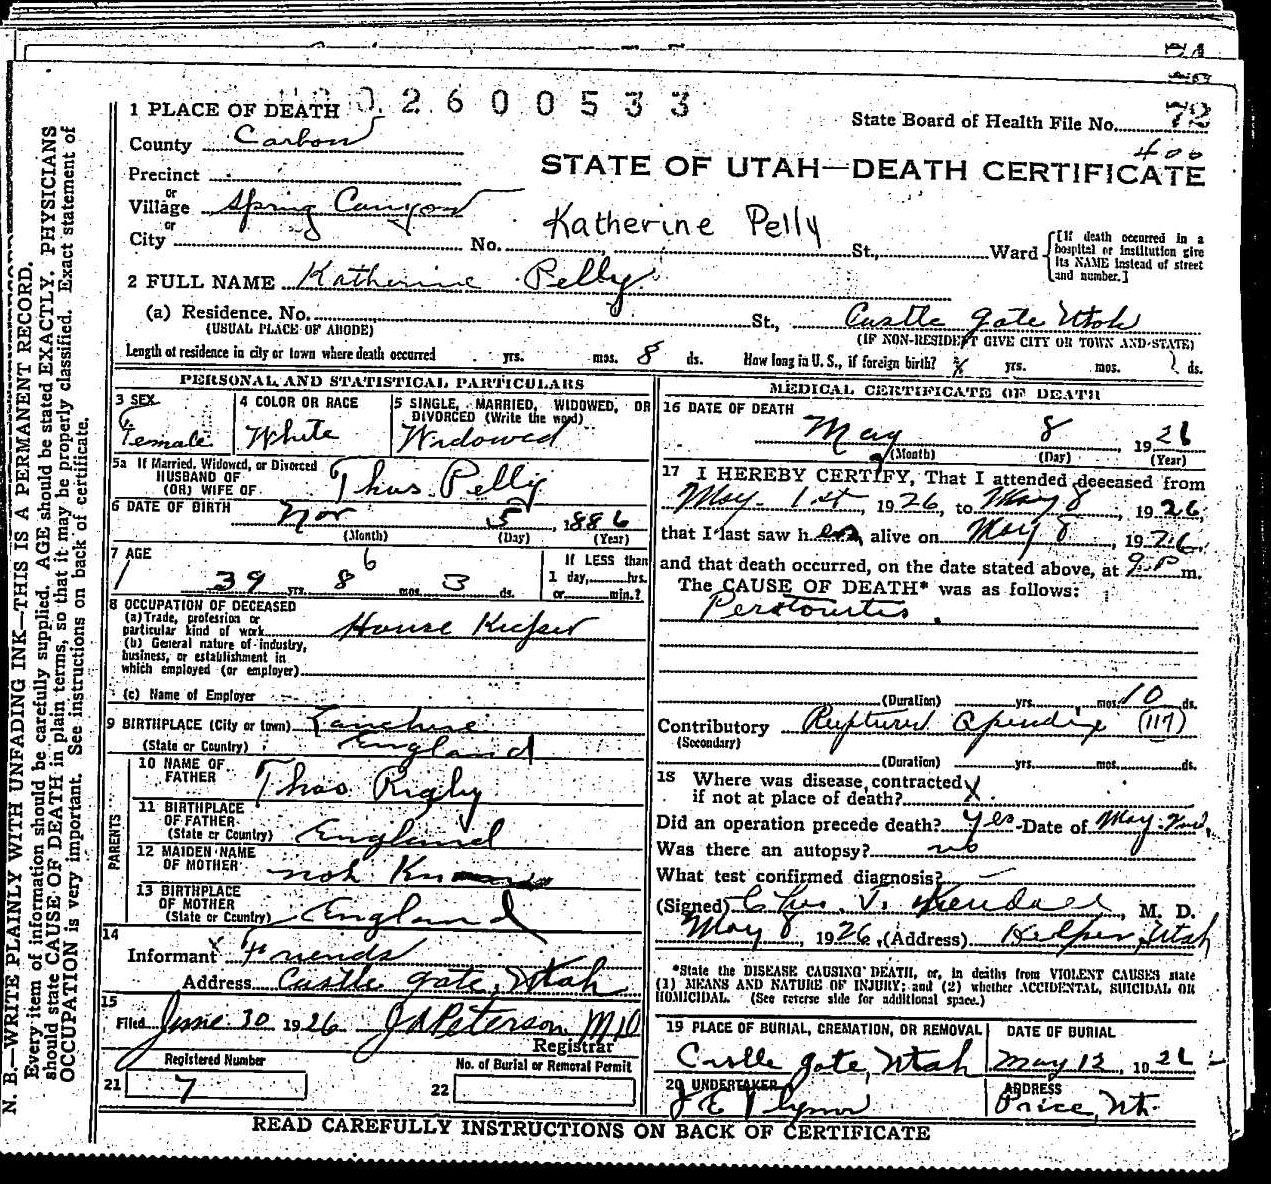 N. B.—WRITE PLAINLY WITH UNFADING INK—THIS IS A PERMANENT RECORD.
Every item of information should be carefully supplied. AGE should be stated EXACTLY. PHYSICIANS
should state CAUSE OF DEATH in plain terms, so that it may be properly classified. Exact statement of
OCCUPATION is very important. See instructions on back of certificate.
1 PLACE OF DEATH 02600533
State Board of Health File No. 72
400
County Carbon
STATE OF UTAH—DEATH CERTIFICATE
Precinct
or
Village Spring Canyon
or
City No. Katherine Pelly St., Ward
[If death occurred in a
hospital or institution give
its NAME instead of street
and number.]
2 FULL NAME Katherine Pelly
(a) Residence. No. St., Castle gate Utah
(USUAL PLACE OF ABODE) (IF NON-RESIDENT GIVE CITY OR TOWN AND STATE)
Length of residence in city or town where death occurred yrs. mos. 8 ds. How long in U. S., if foreign birth? yrs. mos. ds.
PERSONAL AND STATISTICAL PARTICULARS
3 SEX Female
4 COLOR OR RACE White
5 SINGLE, MARRIED, WIDOWED, OR
DIVORCED (Write the word)
Widowed
5a If Married, Widowed, or Divorced
HUSBAND OF
(OR) WIFE OF Thos. Pelly
6 DATE OF BIRTH Nov 5, 1886
(Month) (Day) (Year)
7 AGE 6
39 yrs. 8 mos. 3 ds.
If LESS than
1 day, hrs.
or min.?
8 OCCUPATION OF DECEASED
(a) Trade, profession or
particular kind of work House Kieper
(b) General nature of industry,
business, or establishment in
which employed (or employer)
(c) Name of Employer
9 BIRTHPLACE (City or town)
(State or Country) England
PARENTS
10 NAME OF
FATHER Thos Rigby
11 BIRTHPLACE
OF FATHER
(State or Country) England
12 MAIDEN NAME
OF MOTHER not
13 BIRTHPLACE
OF MOTHER
(State or Country) England
14
Informant x Friends
Address Castle gate, Utah
15
Filed June 30 1926 J A Peterson MD
Registrar
Registered Number
21 7
No. of Burial or Removal Permit
22
MEDICAL CERTIFICATE OF DEATH
16 DATE OF DEATH
May 8 1926
(Month) (Day) (Year)
17 I HEREBY CERTIFY, That I attended deceased from
May 1st, 1926, to May 8, 1926,
that I last saw her alive on May 8, 1926,
and that death occurred, on the date stated above, at 9 P m.
The CAUSE OF DEATH* was as follows:
Peritonitis.
(Duration) yrs. mos. 10 ds.
Contributory Ruptured Apendix (117)
(Secondary)
(Duration) yrs. mos. ds.
18 Where was disease contracted
if not at place of death? X
Did an operation precede death? yes Date of May 2nd,
Was there an autopsy? no
What test confirmed diagnosis? —
(Signed) Chas. V. Kendall, M. D.
May 8, 1926, (Address) Helper, Utah
*State the DISEASE CAUSING DEATH, or, in deaths from VIOLENT CAUSES state
(1) MEANS AND NATURE OF INJURY; and (2) whether ACCIDENTAL, SUICIDAL OR
HOMICIDAL. (See reverse side for additional space.)
19 PLACE OF BURIAL, CREMATION, OR REMOVAL
Castle gate, Utah
DATE OF BURIAL
May 12, 1926
20 UNDERTAKER
J E Flynn
ADDRESS
Price, Ut.
READ CAREFULLY INSTRUCTIONS ON BACK OF CERTIFICATE